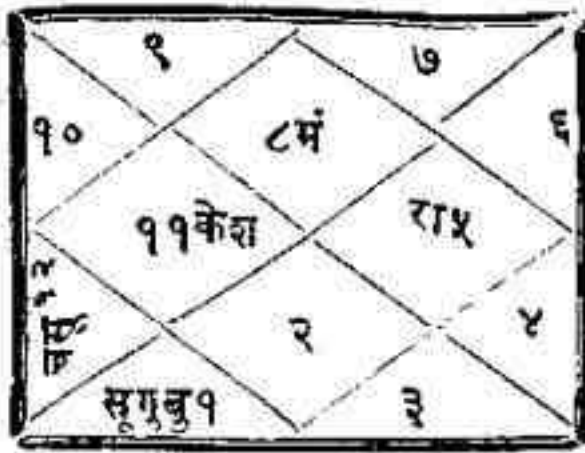 ९
७
१०
८मं
६
११केश
रा५
१२
२
४
सूगुबु१
३